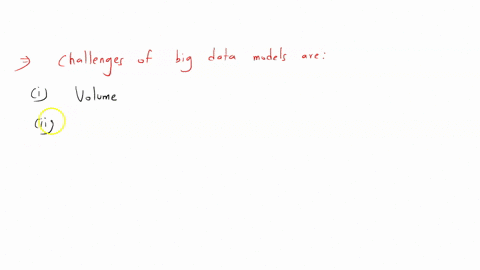 ⇒ Challenges of big data models are:
(i) Volume
(ii)